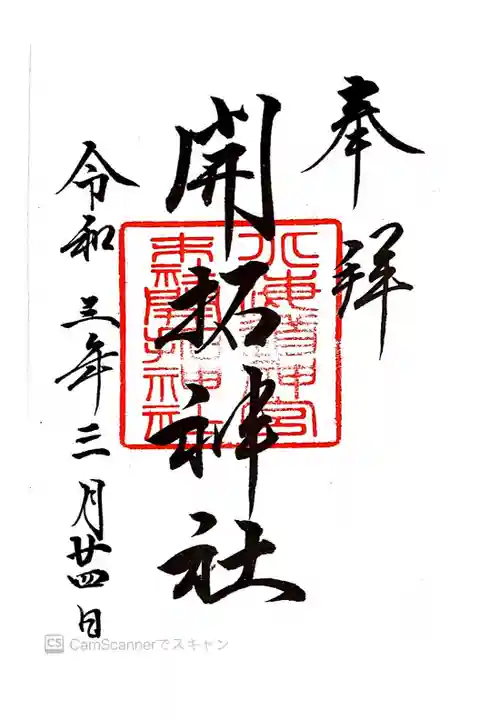 奉拝
開拓神社
北海道神宮
末社開拓神社
令和三年三月廿四日
CS CamScannerでスキャン